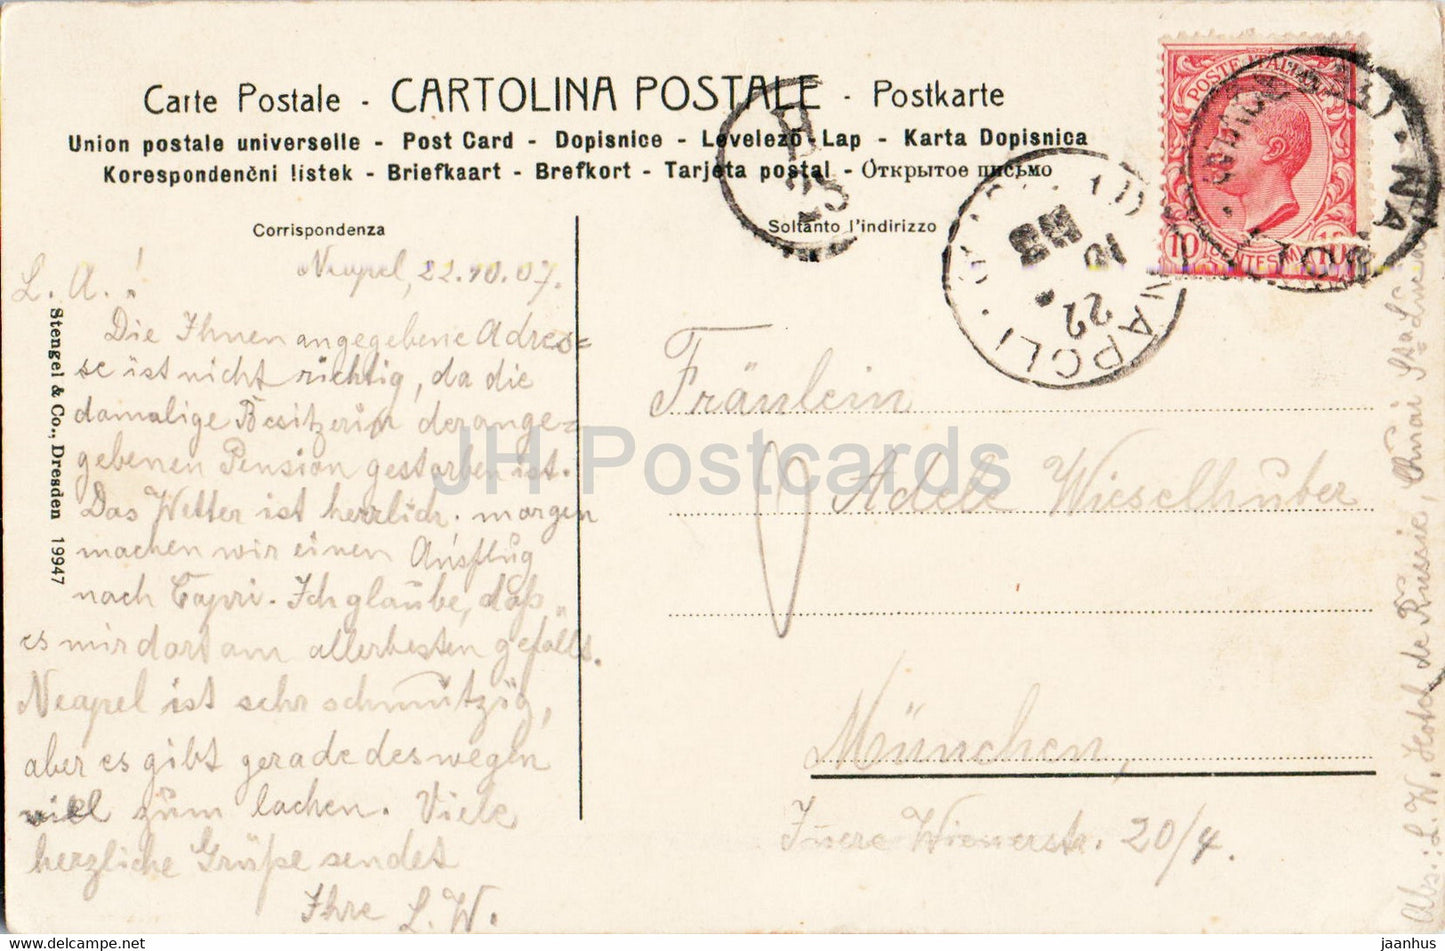 Carte Postale - CARTOLINA POSTALE - Postkarte
Union postale universelle - Post Card - Dopisnice - Levelező-Lap - Karta Dopisnica
Korespondenční listek - Briefkaart - Brefkort - Tarjeta postal - Открытое письмо
Corrispondenza
Soltanto l'indirizzo
Neapel, 22.10.07.
L. A.!
Die Ihnen angegebene Adres=
se ist nicht richtig, da die
damalige Besitzerin der ange=
gebenen Pension gestorben ist.
Das Wetter ist herrlich. morgen
machen wir einen Ausflug
nach Capri. Ich glaube, daß
es mir dort am allerbesten gefällt.
Neapel ist sehr schmutzig,
aber es gibt gerade deswegen
viel zum lachen. Viele
herzliche Grüße sendet
Ihre L. W.
Stengel & Co., Dresden 19947
POSTE ITALIANE
10 CENTESIMI 10
NAPOLI
22 10
NAPOLI
25
Fräulein
Adele Wieselhuber
München,
Innere Wienerstr. 20/4.
Abs: L. W. Hotel de Russie, Sta Lucia
JH Postcards
www.delcampe.net
jaanhus